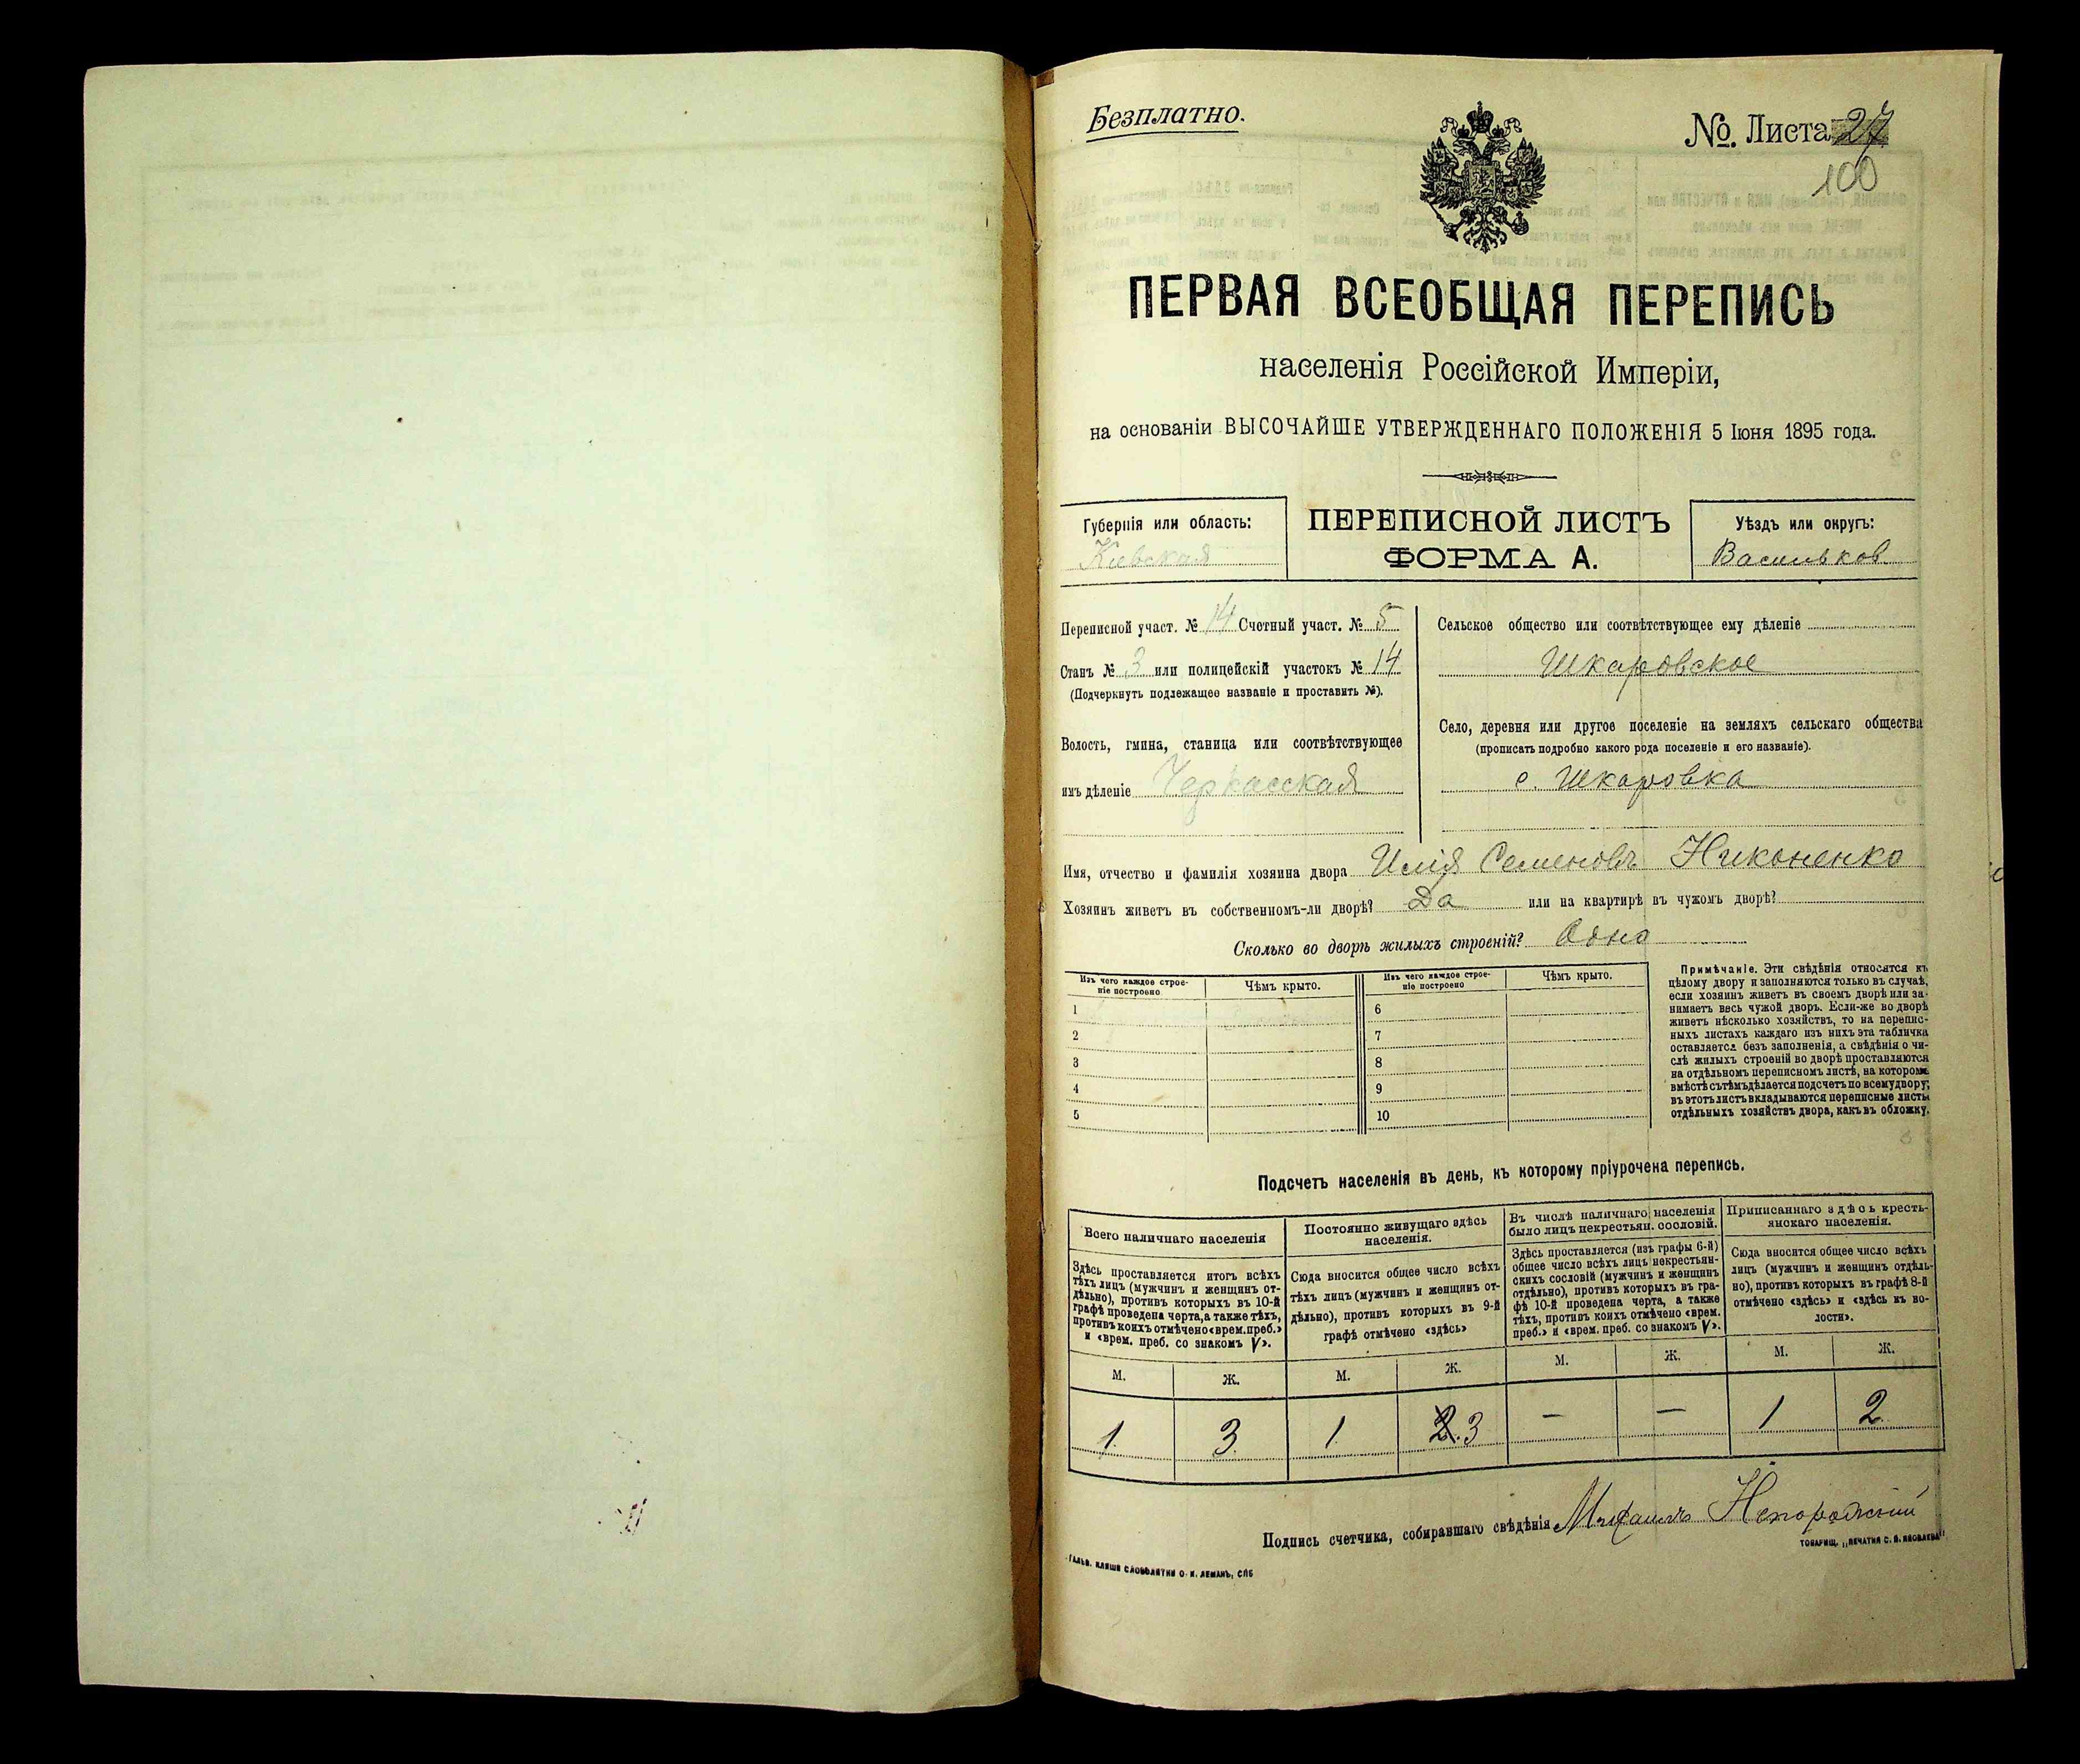 Безплатно.
№ Листа 27
100
ПЕРВАЯ ВСЕОБЩАЯ ПЕРЕПИСЬ
населенія Россійской Имперіи,
на основаніи ВЫСОЧАЙШЕ УТВЕРЖДЕННАГО ПОЛОЖЕНІЯ 5 Іюня 1895 года.
Губернія или область:
Кіевская
ПЕРЕПИСНОЙ ЛИСТЪ
ФОРМА А.
Уѣздъ или округъ:
Васильков
Переписной участ. № 14 Счетный участ. № 5
Станъ № 3 или полицейскій участокъ № 14
(Подчеркнуть подлежащее названіе и проставить №).
Волость, гмина, станица или соотвѣтствующее
имъ дѣленіе Черкасская
Сельское общество или соотвѣтствующее ему дѣленіе
Шкаровское
Село, деревня или другое поселеніе на земляхъ сельскаго общества
(прописать подробно какого рода поселеніе и его названіе).
с. Шкаровка
Имя, отчество и фамилія хозяина двора Илія Семеновъ Никоненко
Хозяинъ живетъ въ собственномъ-ли дворѣ? Да или на квартирѣ въ чужомъ дворѣ?
Сколько во дворѣ жилыхъ строеній? Одно
Изъ чего каждое строе-
ніе построено
Чѣмъ крыто.
Изъ чего каждое строе-
ніе построено
Чѣмъ крыто.
1
2
3
4
5
6
7
8
9
10
Примѣчаніе. Эти свѣдѣнія относятся къ
цѣлому двору и заполняются только въ случаѣ,
если хозяинъ живетъ въ своемъ дворѣ или за-
нимаетъ весь чужой дворъ. Если-же во дворѣ
живетъ нѣсколько хозяйствъ, то на перепис-
ныхъ листахъ каждаго изъ нихъ эта табличка
оставляется безъ заполненія, а свѣдѣнія о чи-
слѣ жилыхъ строеній во дворѣ проставляются
на отдѣльномъ переписномъ листѣ, на которомъ
вмѣстѣ съ тѣмъ дѣлается подсчетъ по всему двору;
въ этотъ листъ вкладываются переписные листы
отдѣльныхъ хозяйствъ двора, какъ въ обложку.
Подсчетъ населенія въ день, къ которому пріурочена перепись.
Всего наличнаго населенія
Здѣсь проставляется итогъ всѣхъ
тѣхъ лицъ (мужчинъ и женщинъ от-
дѣльно), противъ которыхъ въ 10-й
графѣ проведена черта, а также тѣхъ,
противъ коихъ отмѣчено «врем. преб.»
и «врем. преб. со знакомъ V».
Постоянно живущаго здѣсь
населенія.
Сюда вносится общее число всѣхъ
тѣхъ лицъ (мужчинъ и женщинъ от-
дѣльно), противъ которыхъ въ 9-й
графѣ отмѣчено «здѣсь»
Въ числѣ наличнаго населенія
было лицъ некрестьян. сословій.
Здѣсь проставляется (изъ графы 6-й)
общее число всѣхъ лицъ некрестьян-
скихъ сословій (мужчинъ и женщинъ
отдѣльно), противъ которыхъ въ гра-
фѣ 10-й проведена черта, а также
тѣхъ, противъ коихъ отмѣчено «врем.
преб.» и «врем. преб. со знакомъ V».
Приписаннаго здѣсь кресть-
янскаго населенія.
Сюда вносится общее число всѣхъ
лицъ (мужчинъ и женщинъ отдѣль-
но), противъ которыхъ въ графѣ 8-й
отмѣчено «здѣсь» и «здѣсь къ во-
лости».
М. Ж. М. Ж. М. Ж. М. Ж.
1 3 1 2 3 — — 1 2
Подпись счетчика, собиравшаго свѣдѣнія Михаилъ
ТОВАРИЩ. „ПЕЧАТНЯ С. П. ЯКОВЛЕВА"
ГАЛЬВ. КЛИШЕ СЛОВОЛИТНИ О. И. ЛЕМАНЪ, СПБ